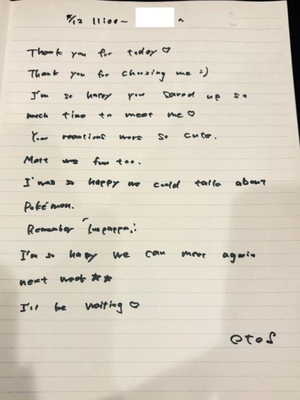 3/12 11:00~
Thank you for today ♡
Thank you for choosing me :)
I'm so happy you saved up so
much time to meet me ♡
Your reactions were so cute.
was fun too.
I was so happy we could talk about
Pokémon.
Remember
I'm so happy we can meet again
next week **
I'll be waiting ♡